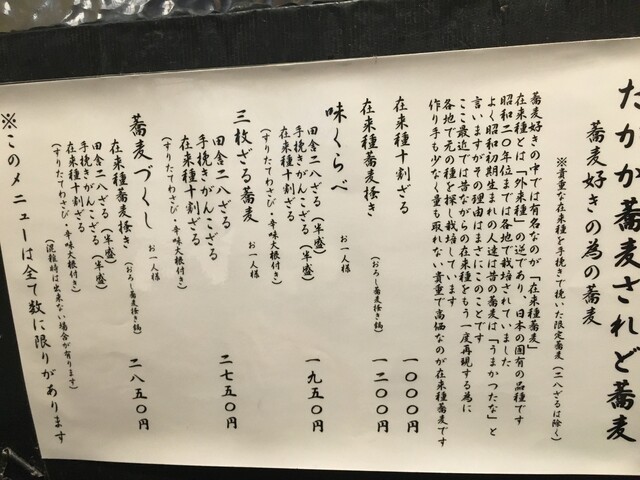 たかが蕎麦されど蕎麦
蕎麦好きの為の蕎麦
※貴重な在来種を手挽きで挽いた限定蕎麦（二八ざるは除く）
蕎麦好きの中では有名なのが「在来種蕎麦」
在来種とは「外来種」の逆であり、日本の固有の品種です
昭和二〇年位までは各地で栽培されていました
よく昭和初期生まれの人達は昔の蕎麦は「うまかったな」と
言いますがその理由はまさにこのことです
ここ最近では昔ながらの在来種をもう一度再現する為に
各地で元の種を探し栽培しています
作り手も少なく量も取れない貴重で高価なのが在来種蕎麦です
在来種十割ざる 一〇〇〇円
在来種蕎麦掻き （おろし蕎麦掻き鍋） 一二〇〇円
味くらべ お一人様 一九五〇円
田舎二八ざる（半盛）
手挽きがんこざる（半盛）
在来種十割ざる
（すりたてわさび・辛味大根付き）
三枚ざる蕎麦 お一人様 二七五〇円
田舎二八ざる
手挽きがんこざる
在来種十割ざる
（すりたてわさび・辛味大根付き）
蕎麦づくし お一人様 二八五〇円
在来種蕎麦掻き（おろし蕎麦掻き鍋）
田舎二八ざる（半盛）
手挽きがんこざる（半盛）
在来種十割ざる
（すりたてわさび・辛味大根付き）
（混雑時は出来ない場合が有ります）
※このメニューは全て数に限りがあります